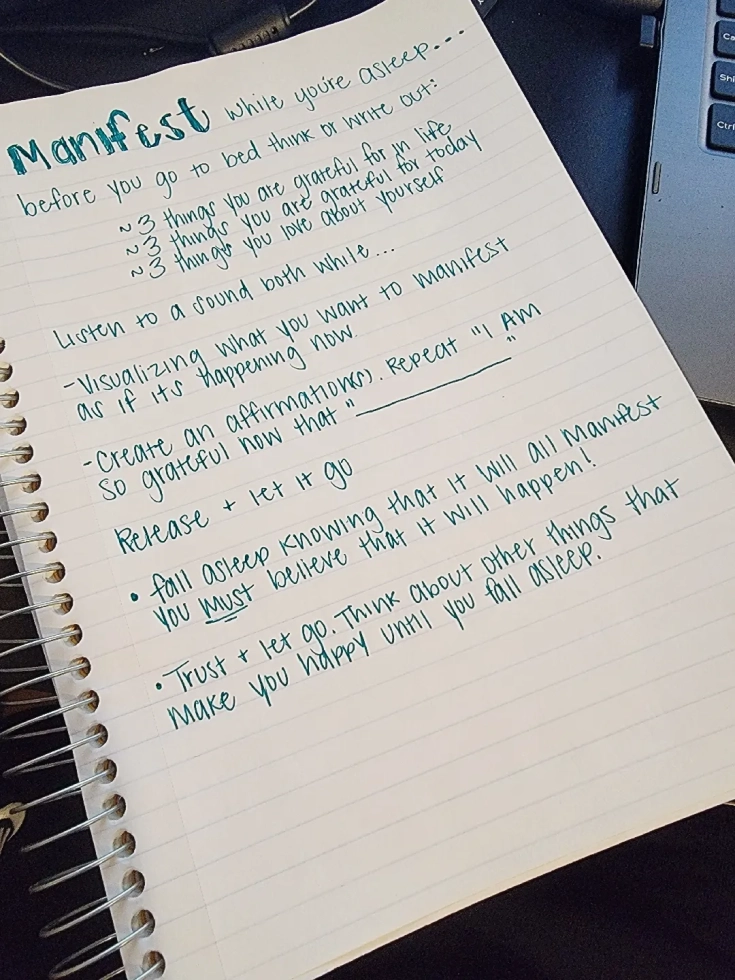 Manifest while you're asleep...
before you go to bed think or write out:
~3 things you are grateful for in life
~3 things you are grateful for today
~3 things you love about yourself
Listen to a sound both while...
-Visualizing what you want to manifest
as if it's happening now.
-Create an affirmation(s). Repeat "I AM
so grateful now that "__________"
Release + let it go
• fall asleep knowing that it will all Manifest
you must believe that it will happen!
• Trust + let go. Think about other things that
make you happy until you fall asleep.
Ca
Shi
Ctrl